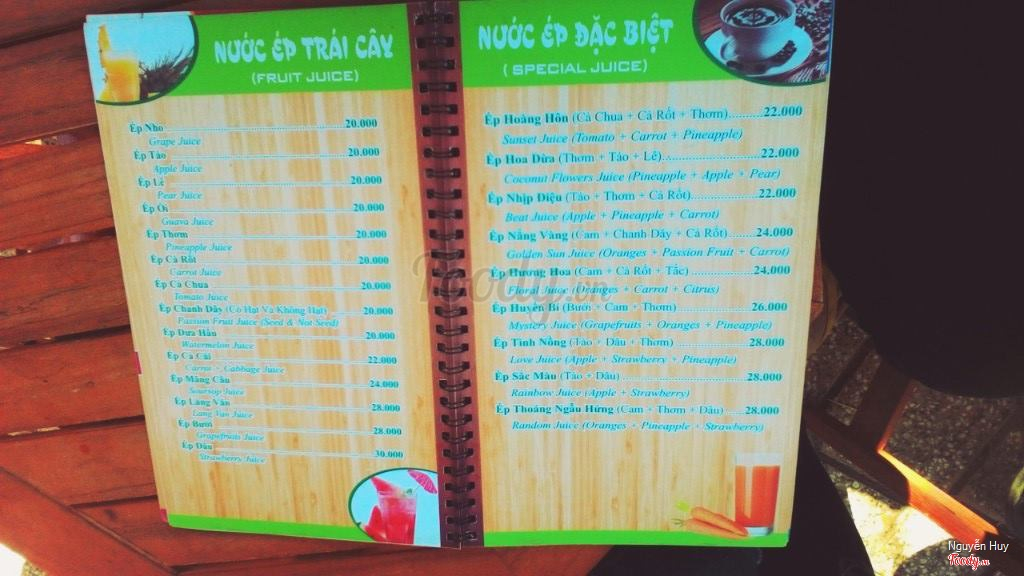 NƯỚC ÉP TRÁI CÂY
(FRUIT JUICE)
Ép Nho 20.000
Grape Juice
Ép Táo 20.000
Apple Juice
Ép Lê 20.000
Pear Juice
Ép Ổi 20.000
Guava Juice
Ép Thơm 20.000
Pineapple Juice
Ép Cà Rốt 20.000
Carrot Juice
Ép Cà Chua 20.000
Tomato Juice
Ép Chanh Dây (Có Hạt Và Không Hạt) 20.000
Passion Fruit Juice (Seed & Not Seed)
Ép Dưa Hấu 20.000
Watermelon Juice
Ép Cà Cải 22.000
Carrot + Cabbage Juice
Ép Mãng Cầu 24.000
Soursop Juice
Ép Lãng Vân 28.000
Lang Van Juice
Ép Bưởi 28.000
Grapefruits Juice
Ép Dâu 30.000
Strawberry Juice
NƯỚC ÉP ĐẶC BIỆT
( SPECIAL JUICE)
Ép Hoàng Hôn (Cà Chua + Cà Rốt + Thơm) 22.000
Sunset Juice (Tomato + Carrot + Pineapple)
Ép Hoa Dừa (Thơm + Táo + Lê) 22.000
Coconut Flowers Juice (Pineapple + Apple + Pear)
Ép Nhịp Điệu (Táo + Thơm + Cà Rốt) 22.000
Beat Juice (Apple + Pineapple + Carrot)
Ép Nắng Vàng (Cam + Chanh Dây + Cà Rốt) 24.000
Golden Sun Juice (Oranges + Passion Fruit + Carrot)
Ép Hương Hoa (Cam + Cà Rốt + Tắc) 24.000
Floral Juice (Oranges + Carrot + Citrus)
Ép Huyền Bí (Bưởi + Cam + Thơm) 26.000
Mystery Juice (Grapefruits + Oranges + Pineapple)
Ép Tình Nồng (Táo + Dâu + Thơm) 28.000
Love Juice (Apple + Strawberry + Pineapple)
Ép Sắc Màu (Táo + Dâu) 28.000
Rainbow Juice (Apple + Strawberry)
Ép Thoáng Ngẫu Hứng (Cam + Thơm + Dâu) 28.000
Random Juice (Oranges + Pineapple + Strawberry)
Foody.vn
Nguyễn Huy
Foody.vn